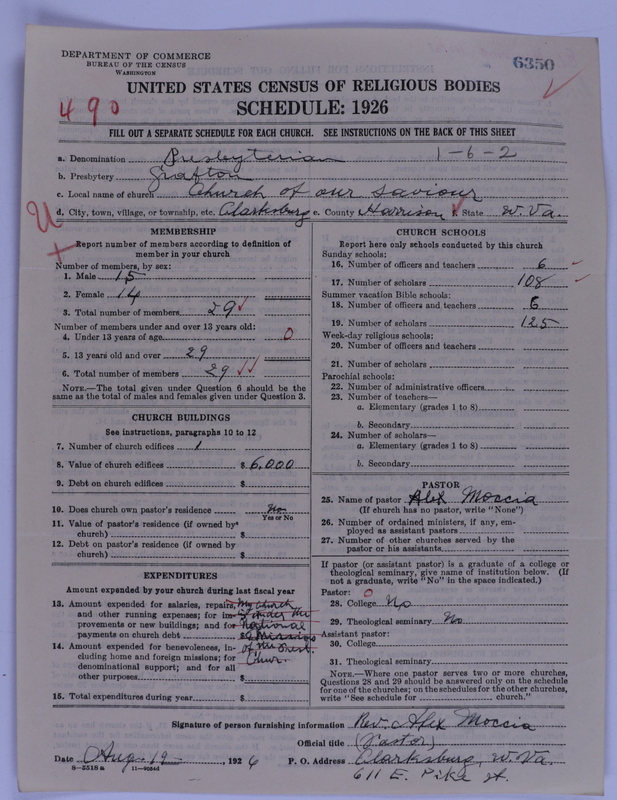 DEPARTMENT OF COMMERCE
BUREAU OF THE CENSUS
WASHINGTON
6350
UNITED STATES CENSUS OF RELIGIOUS BODIES
SCHEDULE: 1926
490
FILL OUT A SEPARATE SCHEDULE FOR EACH CHURCH. SEE INSTRUCTIONS ON THE BACK OF THIS SHEET
a. Denomination Presbyterian 1-6-2
b. Presbytery Grafton
c. Local name of church Church of our Saviour
d. City, town, village, or township, etc. Clarksburg e. County Harrison f. State W. Va.
MEMBERSHIP
Report number of members according to definition of
member in your church
Number of members, by sex:
1. Male 15
2. Female 14
3. Total number of members 29
Number of members under and over 13 years old:
4. Under 13 years of age 0
5. 13 years old and over 29
6. Total number of members 29
NOTE.—The total given under Question 6 should be the
same as the total of males and females given under Question 3.
CHURCH BUILDINGS
See instructions, paragraphs 10 to 12
7. Number of church edifices 1
8. Value of church edifices $ 6,000
9. Debt on church edifices $
10. Does church own pastor's residence No
Yes or No
11. Value of pastor's residence (if owned by
church) $
12. Debt on pastor's residence (if owned by
church) $
EXPENDITURES
Amount expended by your church during last fiscal year
13. Amount expended for salaries, repairs, My church
and other running expenses; for im- is under the
provements or new buildings; and for National
payments on church debt Mission
14. Amount expended for benevolences, in- of the Prest.
cluding home and foreign missions; for Chur.
denominational support; and for all
other purposes $
15. Total expenditures during year $
CHURCH SCHOOLS
Report here only schools conducted by this church
Sunday schools:
16. Number of officers and teachers 6
17. Number of scholars 108
Summer vacation Bible schools:
18. Number of officers and teachers 6
19. Number of scholars 125
Week-day religious schools:
20. Number of officers and teachers
21. Number of scholars
Parochial schools:
22. Number of administrative officers
23. Number of teachers—
a. Elementary (grades 1 to 8)
b. Secondary
24. Number of scholars—
a. Elementary (grades 1 to 8)
b. Secondary
PASTOR
25. Name of pastor Alex Moccia
(If church has no pastor, write "None")
26. Number of ordained ministers, if any, em-
ployed as assistant pastors
27. Number of other churches served by the
pastor or his assistants
If pastor (or assistant pastor) is a graduate of a college or
theological seminary, give name of institution below. (If
not a graduate, write "No" in the space indicated.)
Pastor: 0
28. College No
29. Theological seminary No
Assistant pastor:
30. College
31. Theological seminary
NOTE.—Where one pastor serves two or more churches,
Questions 28 and 29 should be answered only on the schedule
for one of the churches; on the schedules for the other churches,
write "See schedule for church."
Signature of person furnishing information Rev. Alex Moccia
Official title (Pastor)
Date Aug. 12, 1926 P. O. Address Clarksburg, W. Va.
8-5518a 611 E. Pike St.